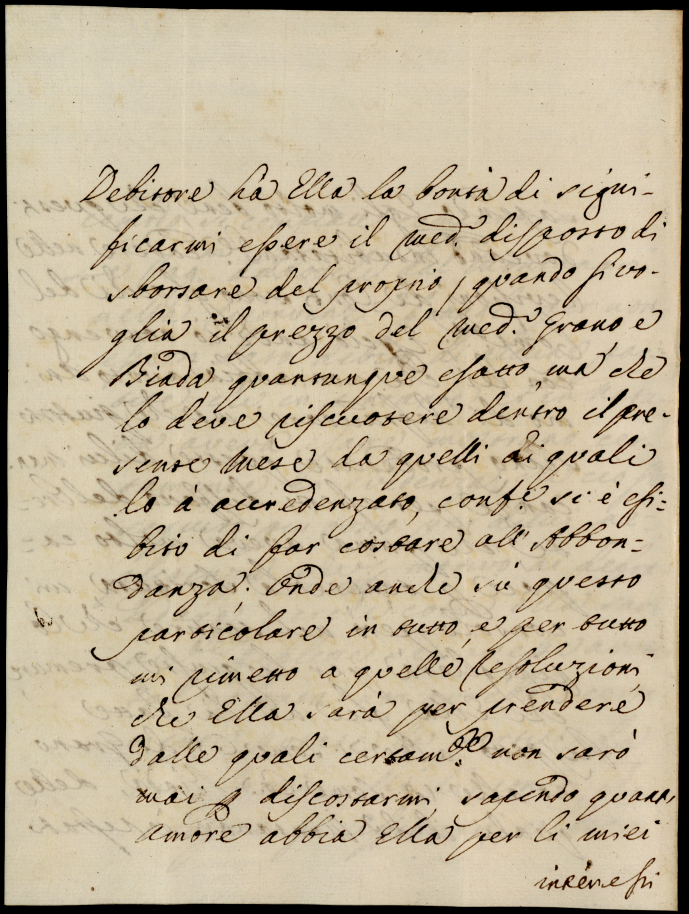 Debitore ha Ella la bontà di signi-
ficarmi essere il med.º disposto di
sborsare del proprio, quando si vo-
glia il prezzo del med.º Grano, e
Biada quantunque esatto, ma che
lo deve riscuotere dentro il pre-
sente Mese da quelli di quali
lo à accredenzato, conf.e si è esi-
bito di far costare all' Abbon-
danza. Onde anche sù questo
particolare in tutto, e per tutto
mi rimetto a quelle resoluzioni
che Ella sarà per prendere
dalle quali certam.te non sarò
mai p discostarmi sapendo quant,
amore abbia Ella per li miei
interessi